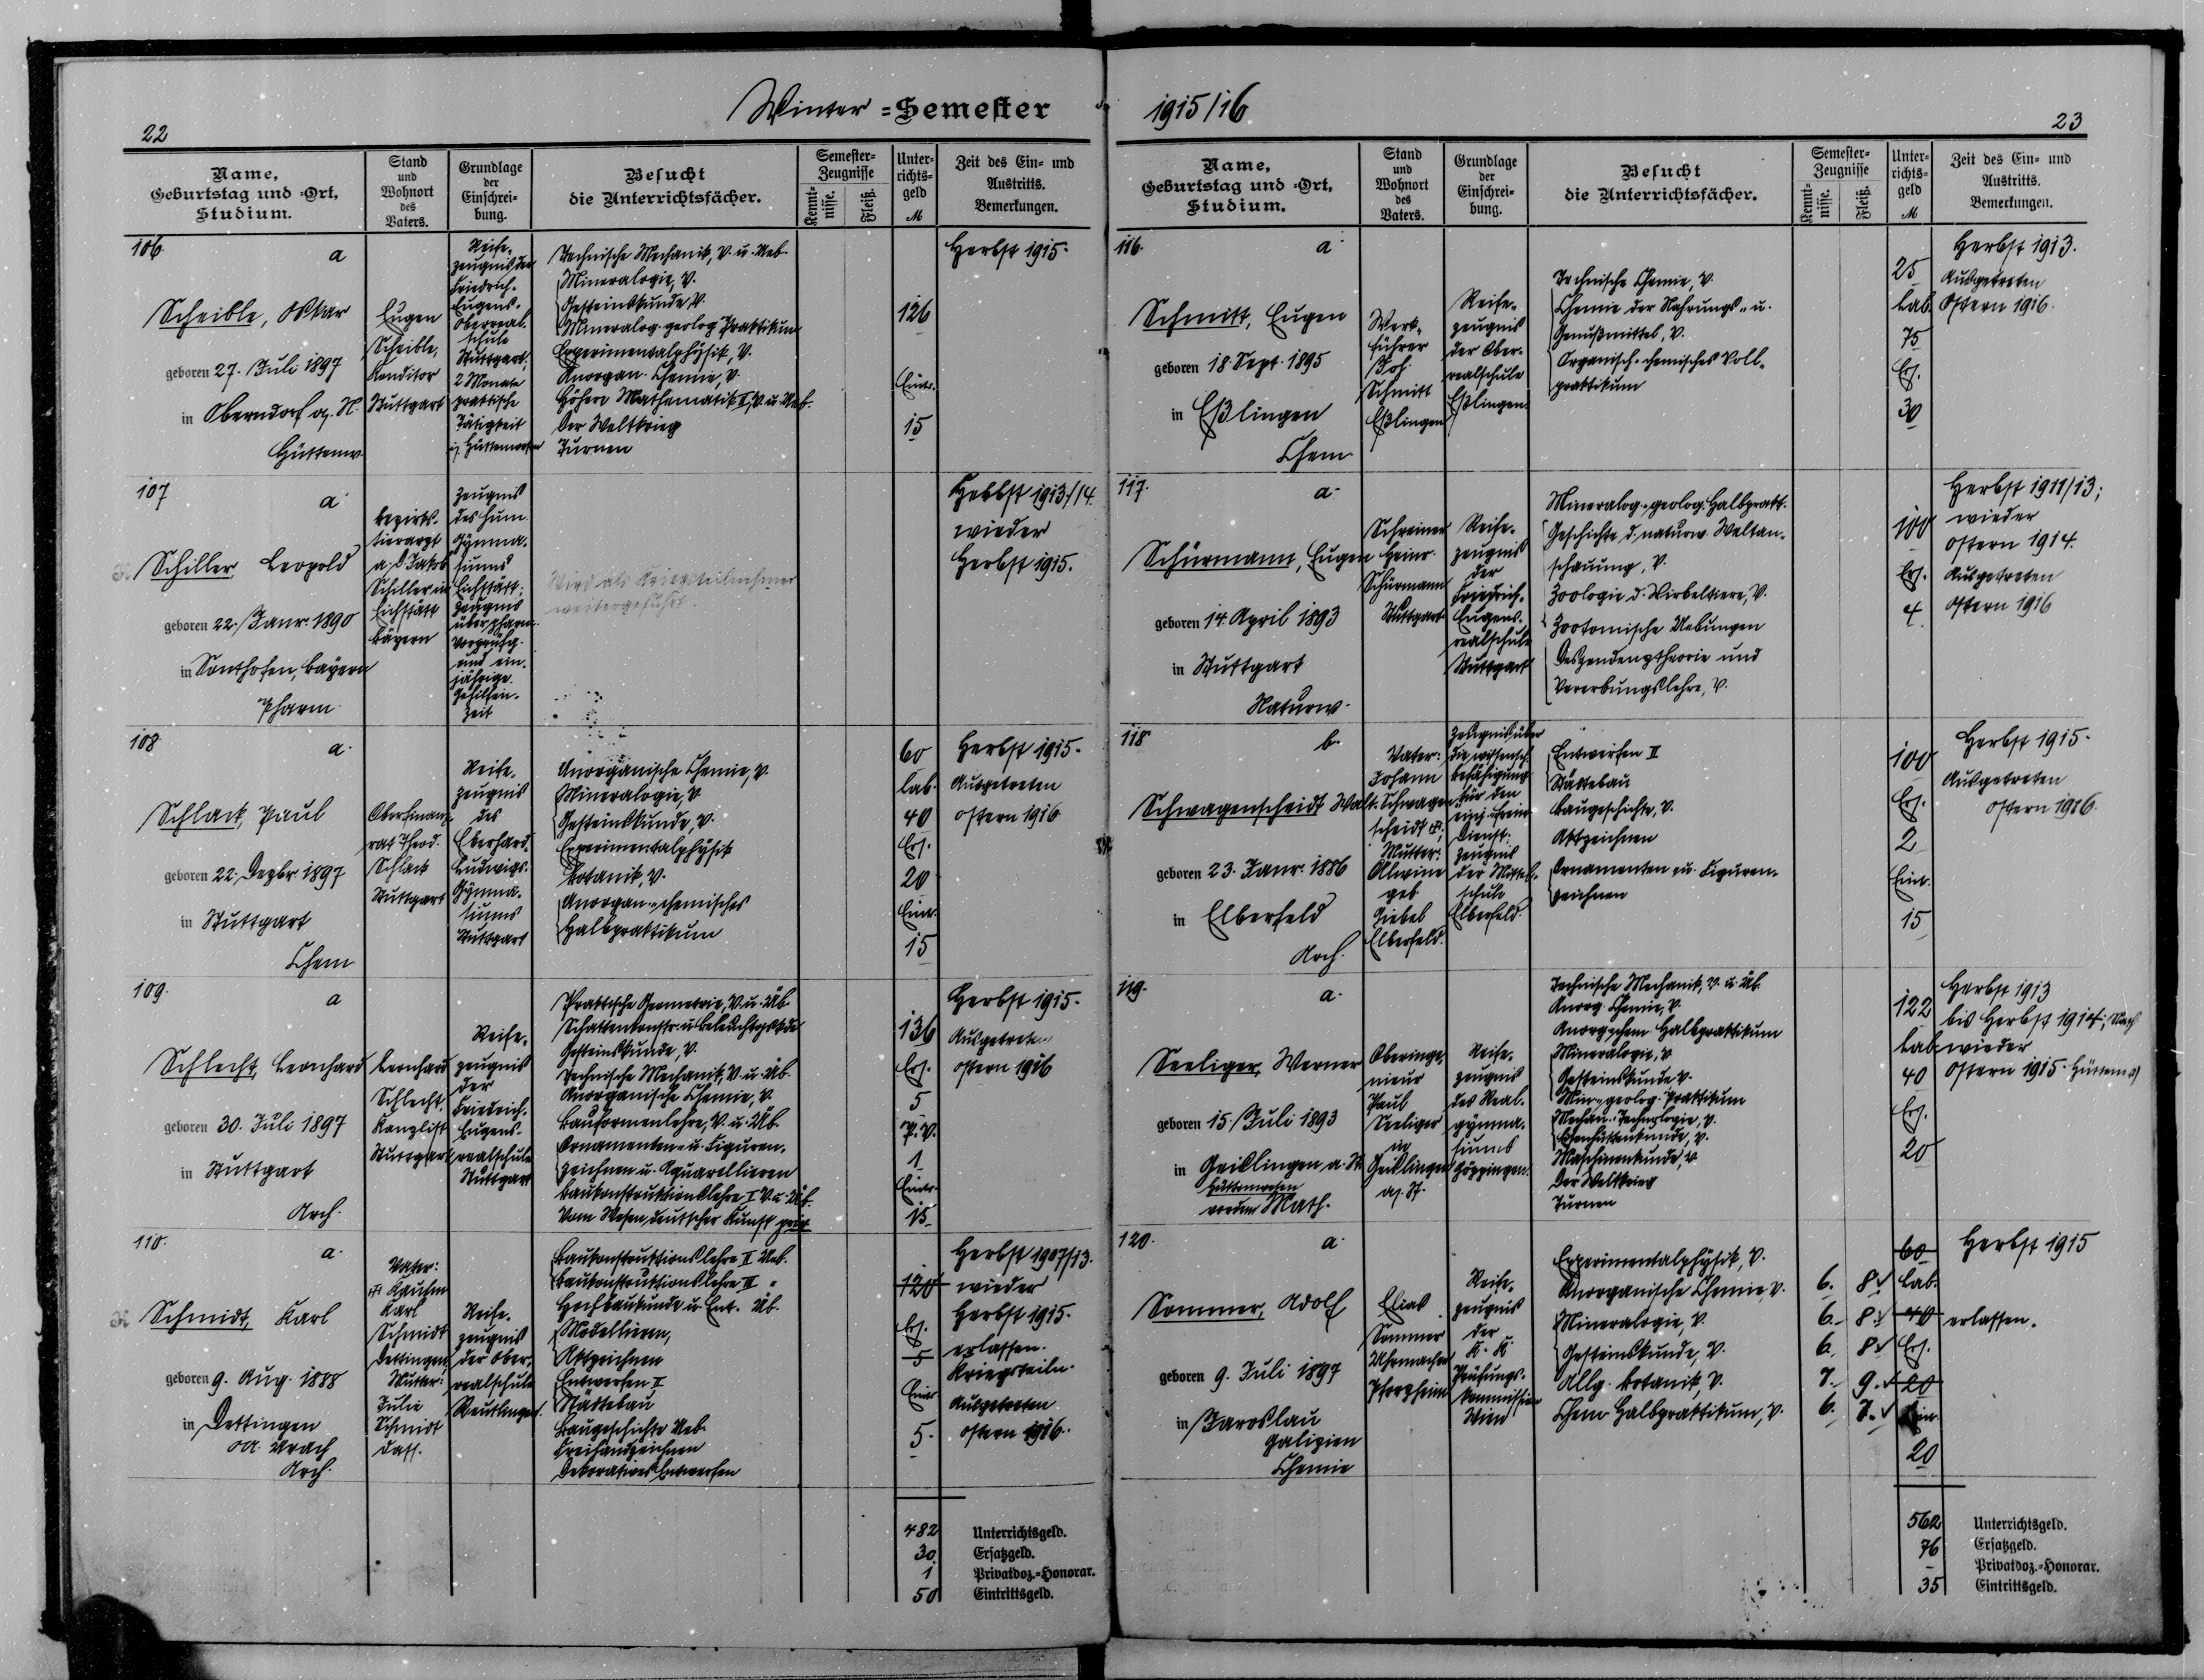 Winter=Semester
22
Name,
Geburtstag und =Ort,
Studium.
Stand
und
Wohnort
des
Vaters.
Grundlage
der
Einschrei=
bung.
Besucht
die Unterrichtsfächer.
Semester=
Zeugnisse
Kennt=
nisse.
Fleiß.
Unter=
richts=
geld
M
Zeit des Ein= und
Austritts.
Bemerkungen.
106
a
Scheible, Oskar
geboren 27. Juli 1897
in Oberndorf a/N.
Hüttenw.
Eugen
Scheible,
Konditor
Stuttgart
Reife-
zeugnis der
Friedrich-
Eugens-
Oberreal-
schule
Stuttgart;
2 Monate
praktische
Tätigkeit
i/ Hüttenwesen
Technische Mechanik, V. u. Ueb.
Mineralogie, V.
Gesteinskunde, V.
Mineralog. geolog. Praktikum
Experimentalphysik, V.
Anorgan. Chemie, V.
Höhere Mathematik II, V. u. Ueb.
Der Weltkrieg
Turnen
126
Eintr.
15
Herbst 1915.
107
a
Schiller, Leopold
geboren 22. Janr. 1890
in Sonthofen, Bayern
Pharm.
Bezirks-
tierarzt
a/D. Jakob
Schiller in
Eichstätt
Bayern
Zeugnis
des hum.
Gymna-
siums
Eichstätt;
Zeugnis
über pharm.
Vorprüfg.
und ein-
jährige
Gehilfen-
zeit
Wird als Kriegsteilnehmer
weitergeführt.
Herbst 1913/14.
wieder
Herbst 1915.
108
a.
Schlack, Paul
geboren 22. Dezbr. 1897
in Stuttgart
Chem
Oberfinanz-
rat Theod.
Schlack
Stuttgart
Reife-
zeugnis
des
Eberhard-
Ludwigs-
Gymna-
siums
Stuttgart
Anorganische Chemie, V.
Mineralogie, V.
Gesteinskunde, V.
Experimentalphysik
Botanik, V.
Anorgan.-chemisches
Halbpraktikum
60
Lab.
40
Ers.
20
Eintr.
15
Herbst 1915.
Ausgetreten
Ostern 1916
109.
a
Schlecht, Leonhard
geboren 30. Juli 1897
in Stuttgart
Arch.
Leonhard
Schlecht,
Kanzlist
Stuttgart
Reife-
zeugnis
der
Friedrich-
Eugens-
realschule
Stuttgart
Praktische Geometrie, V. u. Üb.
Schattenkonstr. u. Beleuchtgskde
Gesteinskunde, V.
Technische Mechanik, V. u. Üb.
Anorganische Chemie, V.
Bauformenlehre, V. u. Üb.
Ornamenten- u. Figuren-
zeichnen u. Aquarellieren
Baukonstruktionslehre I V. u. Üb.
Vom Wesen deutscher Kunst
136
Ers.
5
1
Eintr.
15
Herbst 1915.
Ausgetreten
Ostern 1916
110.
a.
Schmidt, Karl
geboren 9. Aug. 1888
in Dettingen
OA. Urach
Arch.
Vater:
Kaufm.
Karl
Schmidt
Dettingen
Mutter:
Julie
Schmidt
das.
Reife-
zeugnis
der Ober-
realschule
Reutlingen.
Baukonstruktionslehre II Ueb.
Baukonstruktionslehre III "
Hochbaukunde u. Ent. Üb.
Modellieren,
Aktzeichnen
Entwerfen I
Städtebau
Baugeschichte Ueb.
Freihandzeichnen
Dekoratives Entwerfen
120
Ers.
5
Eintr.
5.
Herbst 1907/13.
wieder
Herbst 1915.
erlassen.
Kriegsteiln.
Ausgetreten
Ostern 1916.
482 Unterrichtsgeld.
30 Ersatzgeld.
1 Privatdoz.=Honorar.
50 Eintrittsgeld.
1915/16
23
Name,
Geburtstag und =Ort,
Studium.
Stand
und
Wohnort
des
Vaters.
Grundlage
der
Einschrei=
bung.
Besucht
die Unterrichtsfächer.
Semester=
Zeugnisse
Kennt=
nisse.
Fleiß.
Unter=
richts=
geld
M
Zeit des Ein= und
Austritts.
Bemerkungen.
116.
a.
Schmitt, Eugen
geboren 18 Sept. 1895
in Eßlingen
Chem.
Werk-
führer
Joh.
Schmitt
Eßlingen
Reife-
zeugnis
der Ober-
realschule
Eßlingen.
Technische Chemie, V.
Chemie der Nahrungs- u.
Genußmittel, V.
Organisch-chemisches Voll-
praktikum
25
Lab.
75
Ers.
30
Herbst 1913.
Ausgetreten
Ostern 1916.
117.
a.
Schürmann, Eugen
geboren 14 April 1893
in Stuttgart
Naturw.
Schreiner
Heinr.
Schürmann
Stuttgart
Reife-
zeugnis
der
Friedrich-
Eugens-
realschule
Stuttgart
Mineralog.-geolog. Halbprakt.
Geschichte d. naturw. Weltan-
schauung, V.
Zoologie d. Wirbeltiere, V.
Zootomische Uebungen
Deszendenztheorie und
Vererbungslehre, V.
100
Ers.
4
Herbst 1911/13;
wieder
Ostern 1914.
Ausgetreten
Ostern 1916
118.
b.
Schwagenscheidt Walt.
geboren 23. Janr. 1886
in Elberfeld
Arch.
Vater:
Johann
Schwagen-
scheidt †;
Mutter:
Alwine
geb.
Giebel
Elberfeld.
Zeugnis über
die wissensch.
Befähigung
für den
einj. freiw.
Dienst;
Zeugnis
der Mittel-
schule
Elberfeld.
Entwerfen II
Städtebau
Baugeschichte, V.
Aktzeichnen
Ornamenten u. Figuren-
zeichnen
100
Ers.
2
Eintr.
15
Herbst 1915.
Ausgetreten
Ostern 1916.
119.
a.
Seeliger, Werner
geboren 15. Juli 1893
in Geislingen a. St.
Hüttenwesen
vordem Math.
Oberinge-
nieur
Paul
Seeliger
in
Geislingen
a/St.
Reife-
zeugnis
des Real-
gymna-
siums
Göppingen.
Technische Mechanik, V. u. Üb.
Anorg. Chemie, V.
Anorg.-chem. Halbpraktikum
Mineralogie, V.
Gesteinskunde V.
Min.-geolog. Praktikum
Mechan. Technologie, V.
Eisenhüttenkunde, V.
Maschinenkunde, V.
Der Weltkrieg
Turnen
122
Lab.
40
Ers.
20
Herbst 1913
bis Herbst 1914;
wieder
Ostern 1915.
120.
a.
Sommer, Adolf
geboren 9. Juli 1897
in Jaroslau
Galizien
Chemie
Elias
Sommer
Uhrmacher
Pforzheim
Reife-
zeugnis
der
K. K.
Prüfungs-
kommission
Wien
Experimentalphysik, V.
Anorganische Chemie, V.
Mineralogie, V.
Gesteinskunde, V.
Allg. Botanik, V.
Chem. Halbpraktikum, V.
6. 8
6. 8.
6. 8
7. 9.
6. 7.
60
Lab.
40
Ers.
20
Ein.
20
Herbst 1915
erlassen.
562 Unterrichtsgeld.
76 Ersatzgeld.
- Privatdoz.=Honorar.
35 Eintrittsgeld.